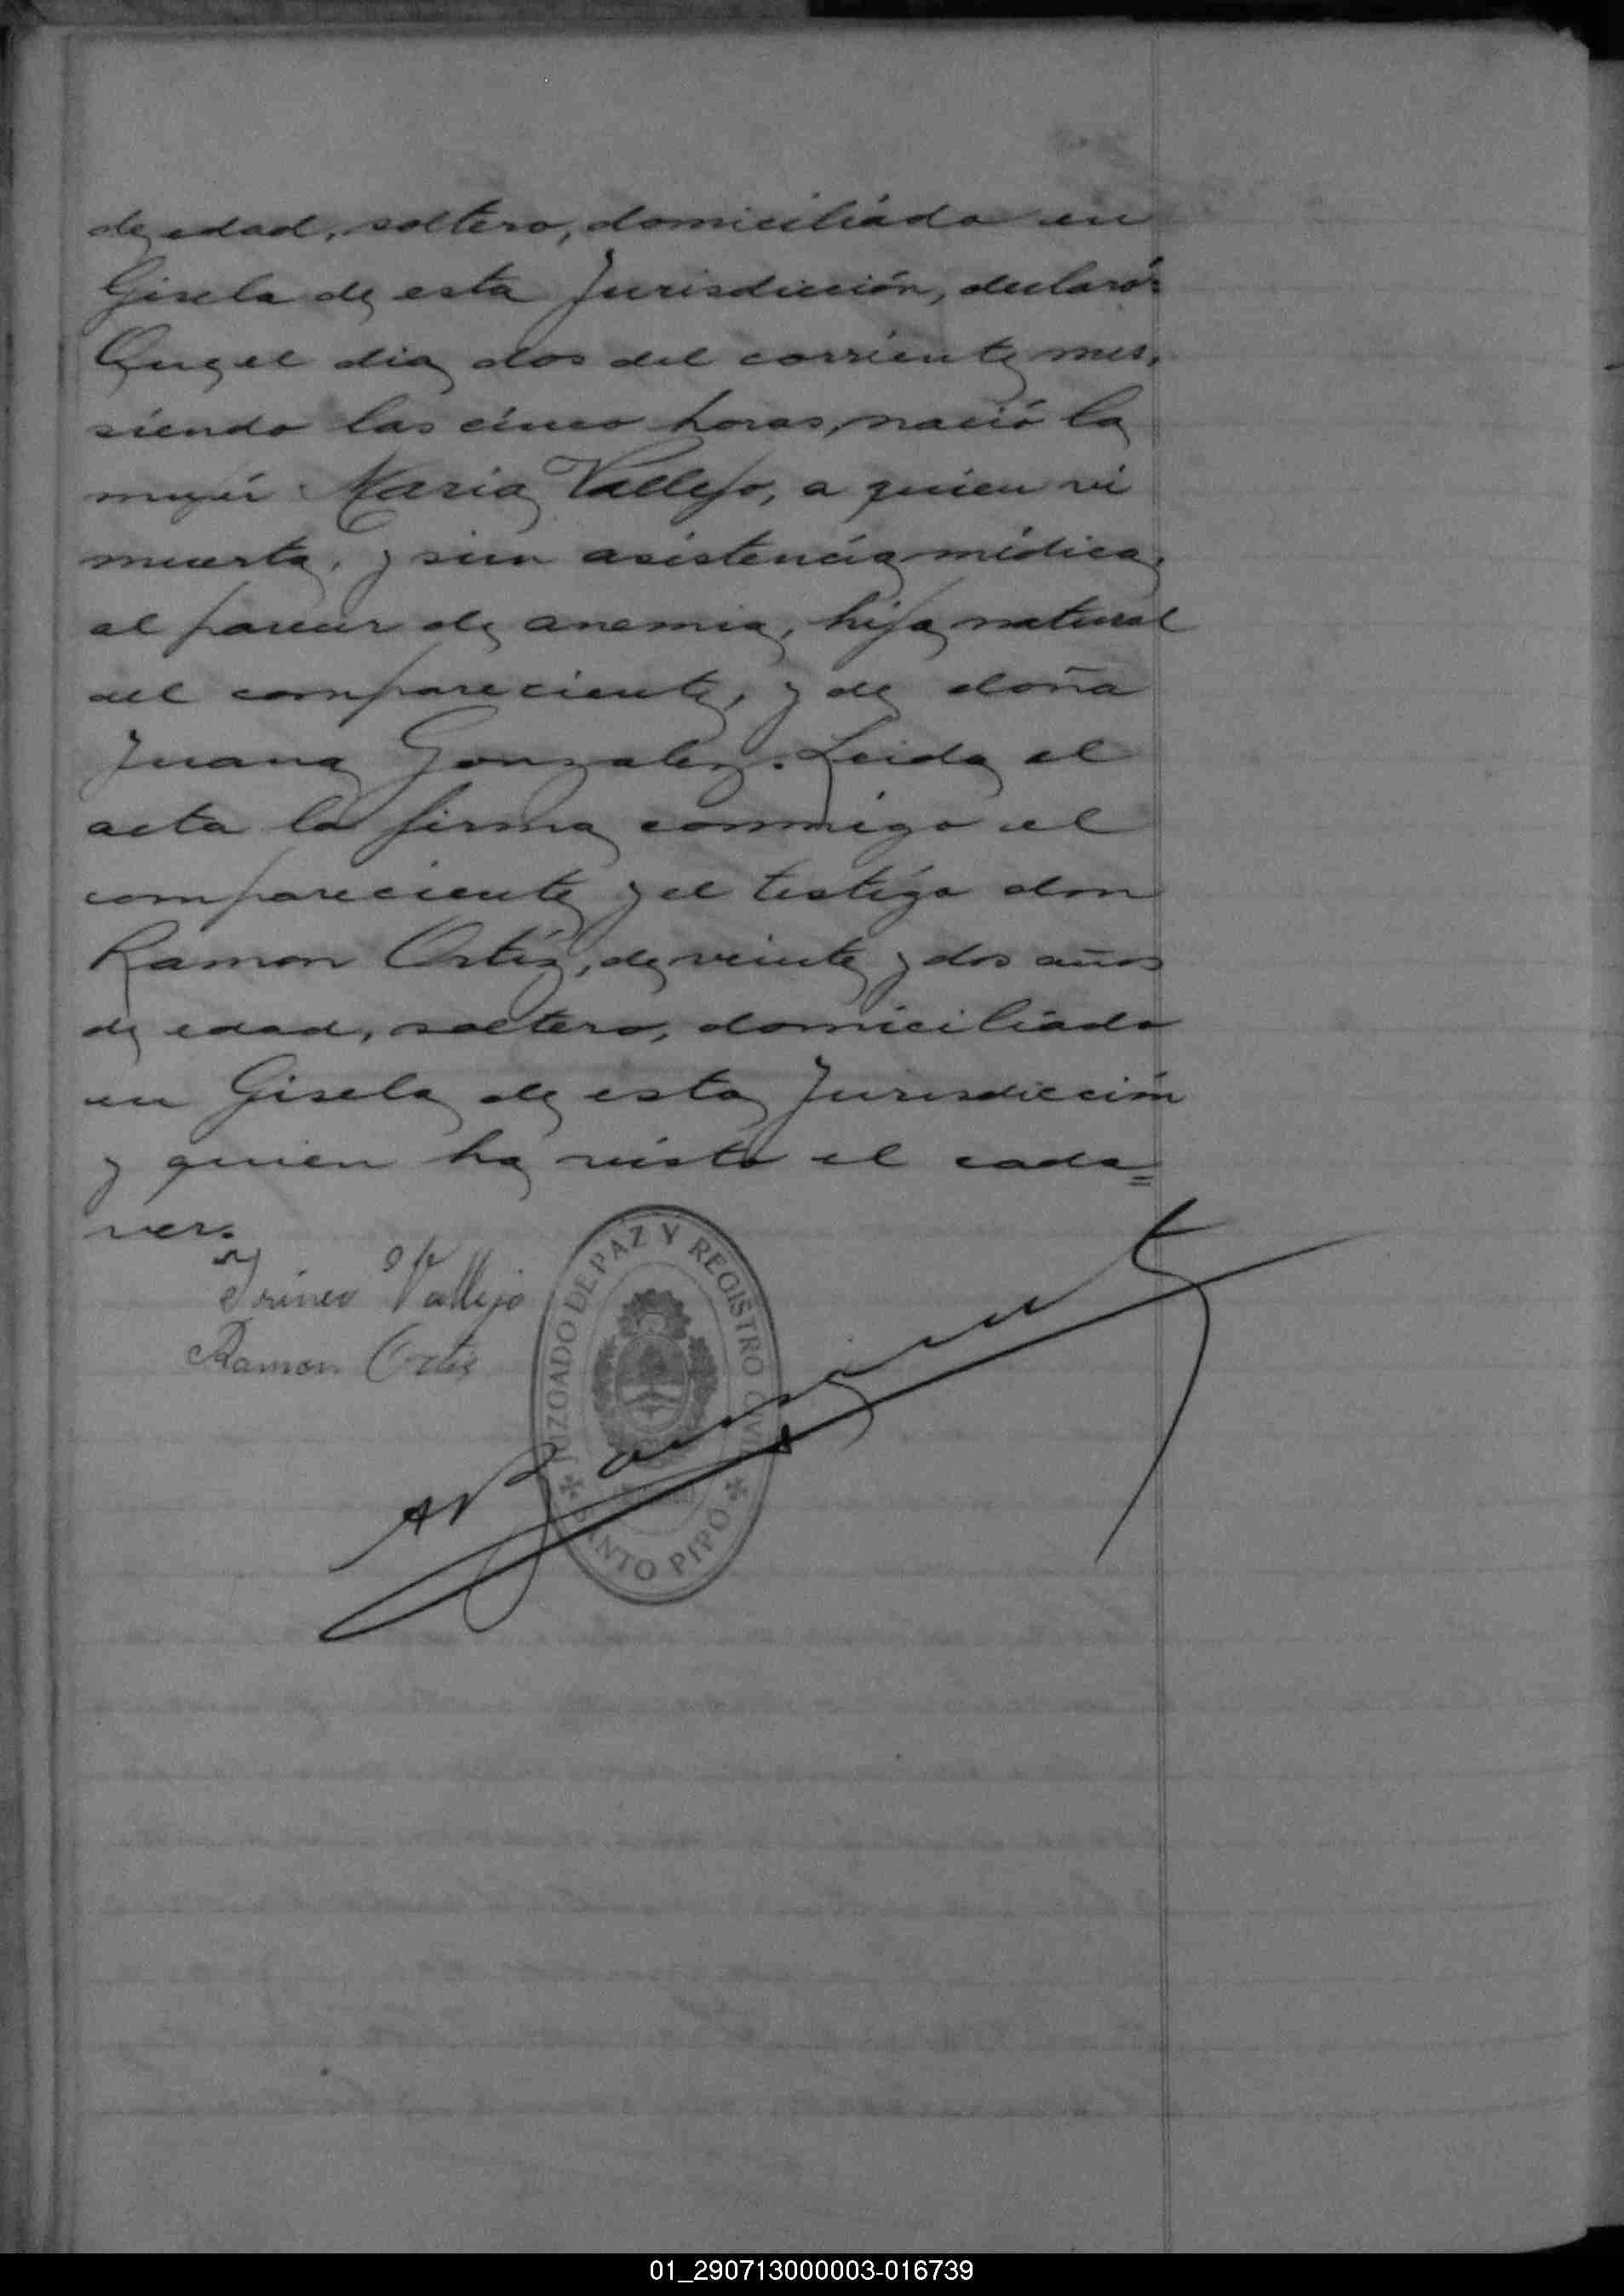 de edad, soltero, domiciliado en
Gisela de esta Jurisdicción, declaró:
Que el dia dos del corriente mes,
siendo las cinco horas, nació la
mujer Maria Vallejo, a quien vi
muerta, y sin asistencia médica,
al parecer de anemia, hija natural
del compareciente, y de doña
Juana Gonzalez. Leida el
acta la firma conmigo el
compareciente y el testigo don
Ramon Ortíz, de veinte y dos años
de edad, soltero, domiciliado
en Gisela de esta Jurisdicción
y quien ha visto el cada=
ver.
Irineo Vallejo
Ramon Ortiz
JUZGADO DE PAZ Y REGISTRO CIVIL
SANTO PIPO
01_290713000003-016739